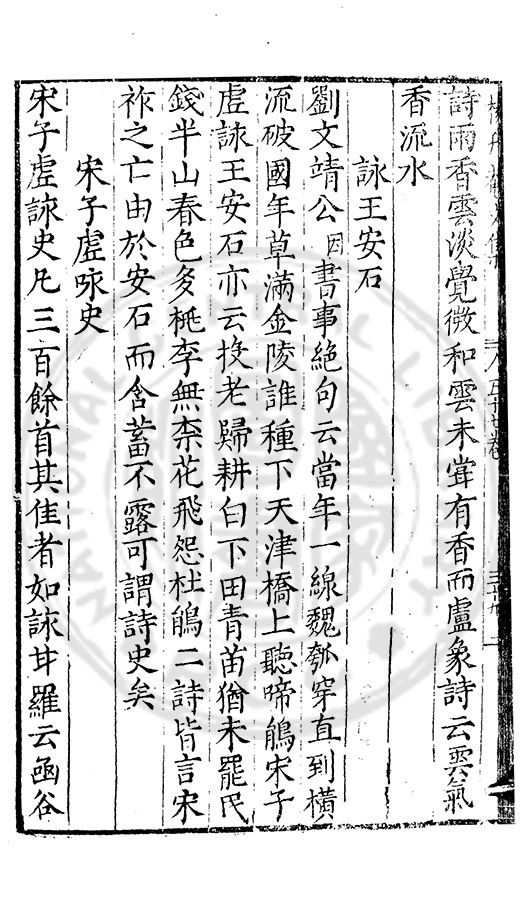 詩雨香雲淡覺微和雲未甞有香而盧象詩云雲氣
香流水
詠王安石
劉文靖公因書事絶句云當年一線魏瓠穿直到橫
流破國年草滿金陵誰種下天津橋上聽啼鵑宋子
虗詠王安石亦云投老歸耕白下田青苗猶未罷民
錢半山春色多桃李無柰花飛怨杜鵑二詩皆言宋
祚之亡由於安石而含蓄不露可謂詩史矣
宋子虗咏史
宋子虗詠史凡三百餘首其佳者如詠甘羅云凾谷